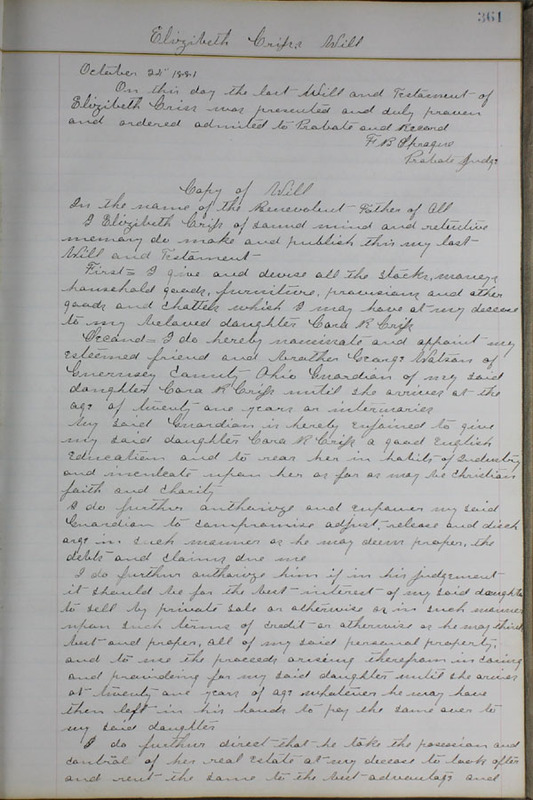 361
Elizibeth Criss Will
October 25" 1881
On this day the last Will and Testament of
Elizibeth Criss was presented and duly proven
and ordered admited to Probate and Record
F B Sprague
Probate Judge
Copy of Will
In the name of the Benevolent Father of All
I Elizibeth Criss of sound mind and retentive
memory do make and publish this my last
Will and Testament
First = I give and devise all the stocks, moneys
household goods, furniture, provisions and other
goods and chattels which I may have at my decease
to my beloved daughter Cora R Criss
Second = I do hereby nominate and appoint my
esteemed friend and brother George Watson of
Guernsey County Ohio Guardian of my said
daughter Cora R Criss until she arrives at the
age of twenty one years or intermaries
My said Guardian is hereby enjoined to give
my said daughter Cora R Criss a good English
Education and to rear her in habits of Industry
and inculcate upon her as far as may be Christian
faith and charity
I do further authorize and empower my said
Guardian to compromise adjust, release and disch
arge in such manner as he may deem proper, the
debts and claims due me
I do further authorize him if in his judgement
it should be for the best interest of my said daughter
to sell by private sale or otherwise or in such manner
upon such terms of credit or otherwise as he may think
best and proper, all of my said personal property,
and to use the proceeds arising therefrom in caring
and providing for my said daughter until she arives
at twenty one years of age whatever he may have
then left in his hands to pay the same over to
my said daughter
I do further direct that he take the possesion and
control of her real Estate at my decease to look after
and rent the same to the best advantage and